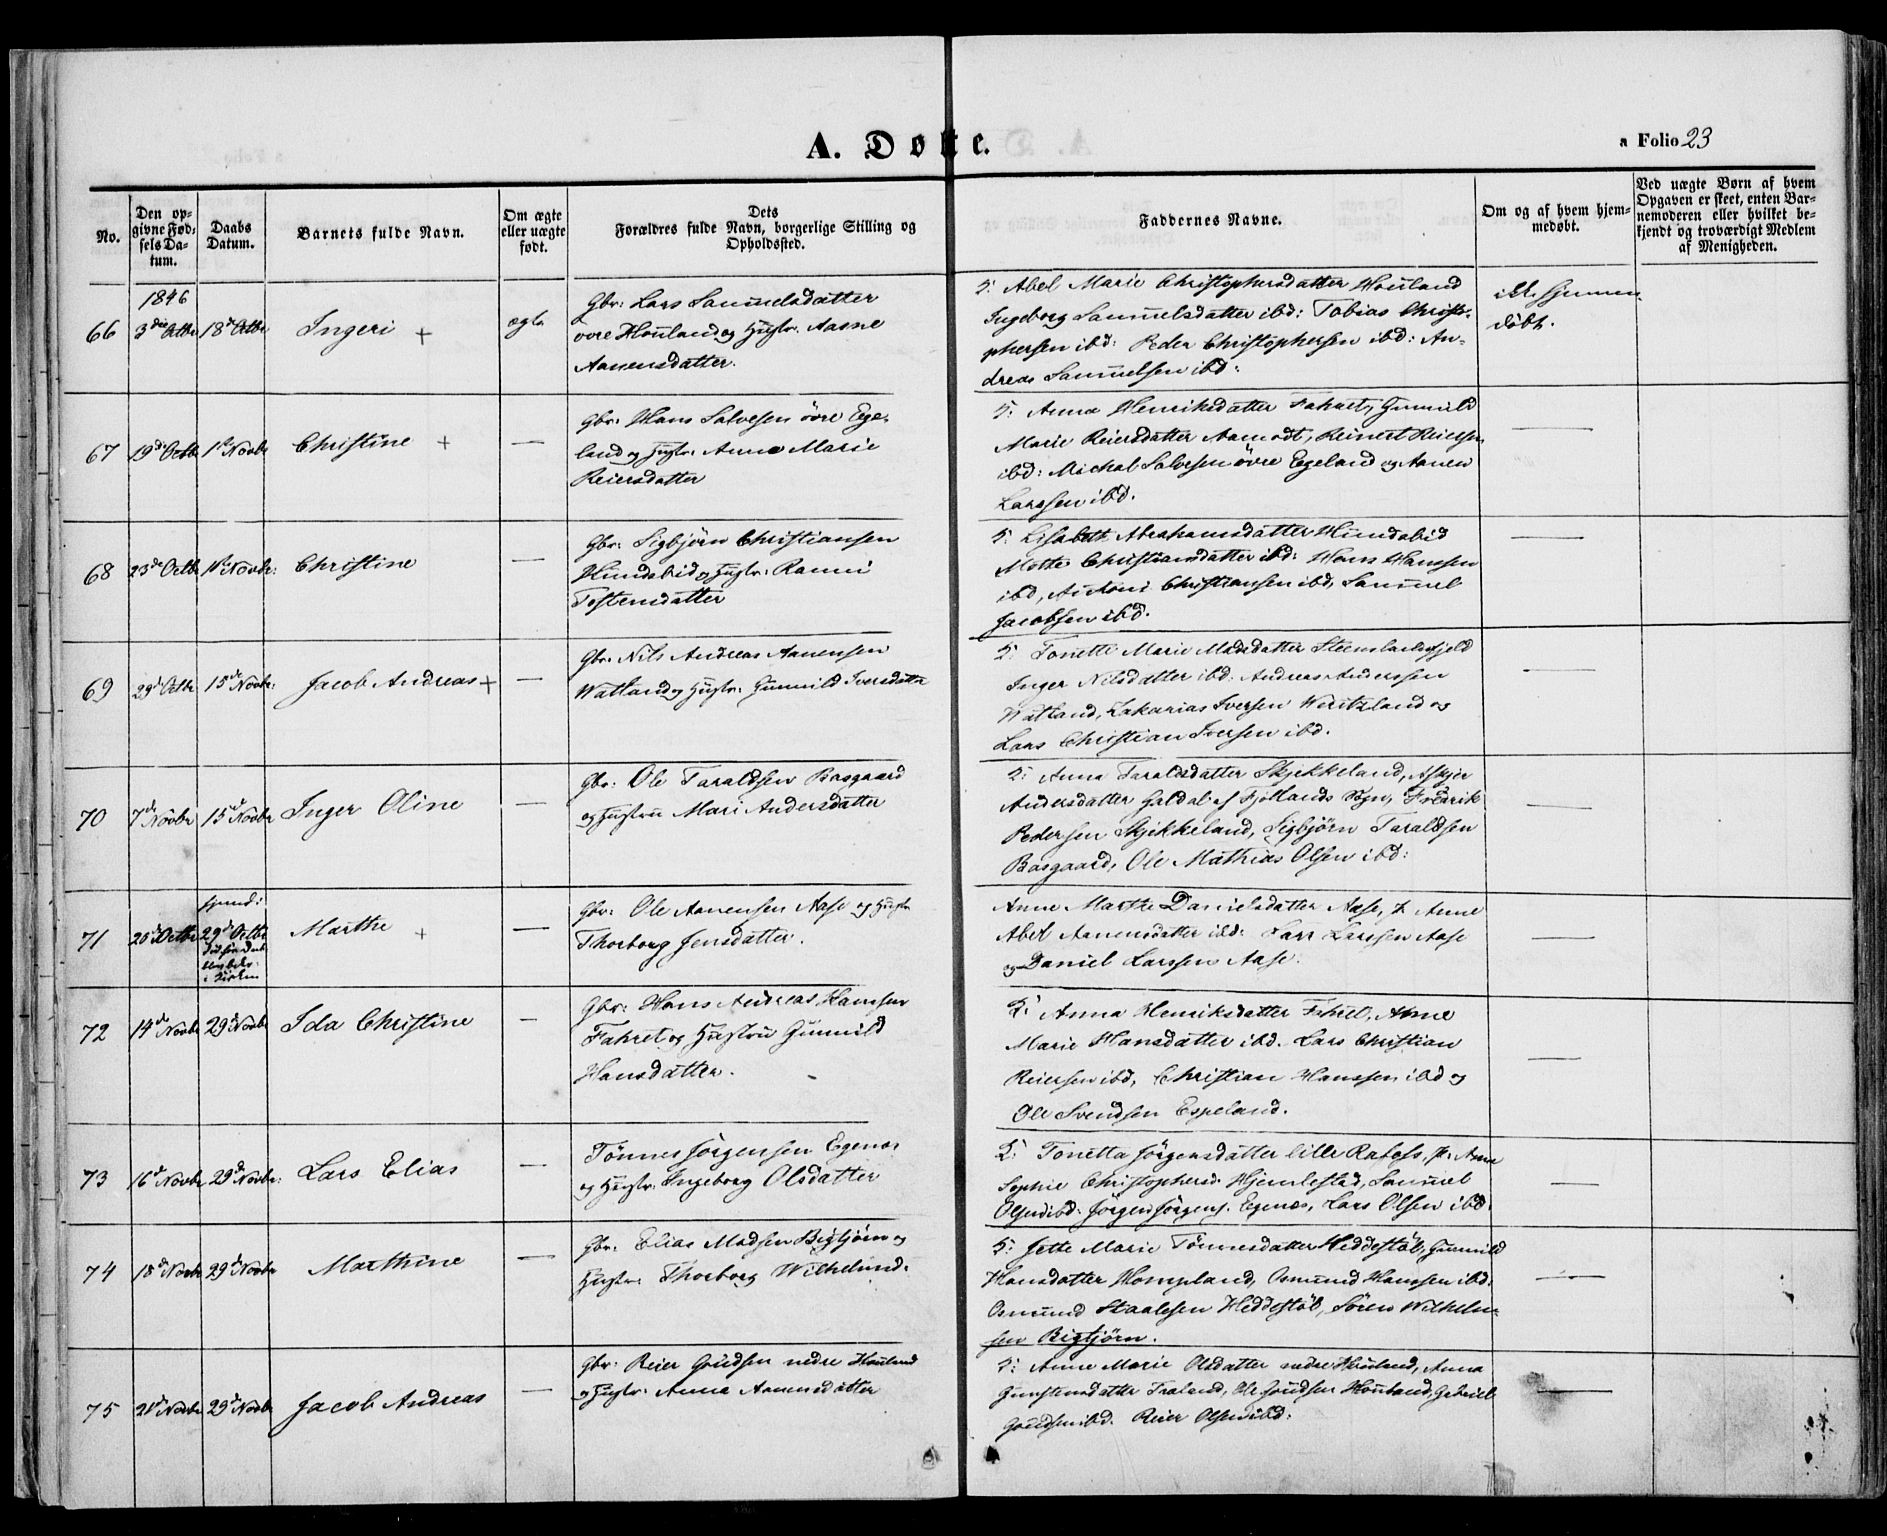 A. Døbte.
a Folio 23
No.
Den opgivne Fødsels Datum.
Daabs Datum.
Barnets fulde Navn.
Om ægte eller uægte født.
Dets Forældres fulde Navn, borgerlige Stilling og Opholdssted.
Faddernes Navne.
Om og af hvem hjemmedøbt.
Ved uægte Børn af hvem Opgaven er skeet, enten Barnemoderen eller hvilket bekjendt og troværdigt Medlem af Menigheden.
1846
66 3die Octbr 18de Octbr Ingeri + ægte
Gbr: Lars Samuelsdatter
øvre Houland og Hustr. Aasne
Aanensdatter.
5: Abel Marie Christophersdatter Houland
Ingeborg Samuelsdatter ibd: Tobias Christo-
phersen ibd: Peder Christophersen ibd: An-
dreas Samuelsen ibd:
ikke hjemme
døbt.
67 19de Octbr 1ste Novbr Christine + —
Gbr: Hans Salvesen övre Ege-
land og Hustr: Anne Marie
Reiersdatter
5: Anna Henriksdatter Fahret, Gunnild
Marie Reiersdatter Aamodt, Reinert Reiersen
ibd: Michal Salvesen övre Egeland og Aanen
Larssen ibd.
—
68 23de Octbr 1ste Novbr: Christine —
Gbr: Sigbjörn Christiansen
Hundsbid og Hustr: Ranni
Tostensdatter
5: Lisabeth Abrahamsdatter Hundsbid
Motte Christiansdatter ibd: Hans Hanssen
ibd, Antoni Christiansen ibd, Samuel
Jacobsen ibd.
—
69 29de Octbr 15de Novbr: Jacob Andreas + —
Gbr: Nils Andreas Aanensen
Watland og Hustr: Gunnild Iversdatter
5: Tonette Marie Madsdatter Steenslandsfjeld
Inger Nilsdatter ibd: Andreas Anderssen
Watland, Zakarias Iversen Weritzland og
Lars Christian Iversen ibd.
—
70 7de Novbr 15de Novbr Inger Oline —
Gbr: Ole Taraldsen Basgaard
og Hustru Mari Andersdatter
5: Anna Taraldsdatter Skjekkeland, Askjer
Andersdatter Galdal af Fjotlands Sogn, Fredrik
Pedersen Skjekkeland, Sigbjörn Taraldsen
Basgaard, Ole Mathias Olsen ibd:
—
71 26de Octbr 29de Octbr Marthe + —
Gbr: Ole Aanensen Aase og Hustr
Thorborg Jensdatter.
Anne Marthe Danielsdatter Aase, p. Anne
Abel Aanensdatter ibd: Lars Larssen Aase
og Daniel Larssen Aase.
—
72 14de Novbr 29de Novbr Ida Christine —
Gbr: Hans Andreas Hanssen
Fahret og Hustru Gunnild
Hansdatter.
5: Anna Henriksdatter Fahret, Anne
Marie Hansdatter ibd. Lars Christian
Reiersen ibd, Christian Hanssen ibd og
Ole Svendsen Espeland.
—
73 16de Novbr 29de Novbr: Lars Elias —
Tönnes Jörgensen Egenæs
og Hustr: Ingeborg Olsdatter
5: Tonetta Jörgensdatter lille Rafoss, p: Anna
Sophie Christophersd. Hjemlestad, Samuel
Olsen ibd: Jörgen Jörgens. Egenæs, Lars Olsen ibd.
—
74 18de Novbr 29de Novbr Marthine —
Gbr: Elias Madsen Bigtjörn og
Hustr: Thorborg Wilhelmsd.
5: Jette Marie Tönnesdatter Heddestöl, Gunnild
Hansdatter Hompland, Osmund Hanssen ibd:
Osmund Staalesen Heddestöl, Sören Wilhelm-
sen Bigtjörn.
—
75 21de Novbr 29de Novbr Jacob Andreas —
Gbr: Reier Gundsen nedre Houland
og Hustr: Anna Aanensdatter
5: Anne Marie Olsdatter nedre Houland, Anna
Gunstensdatter Traland, Ole Gundsen Houland, Gabriel
Gundsen ibd. Reier Olsen ibd:
—